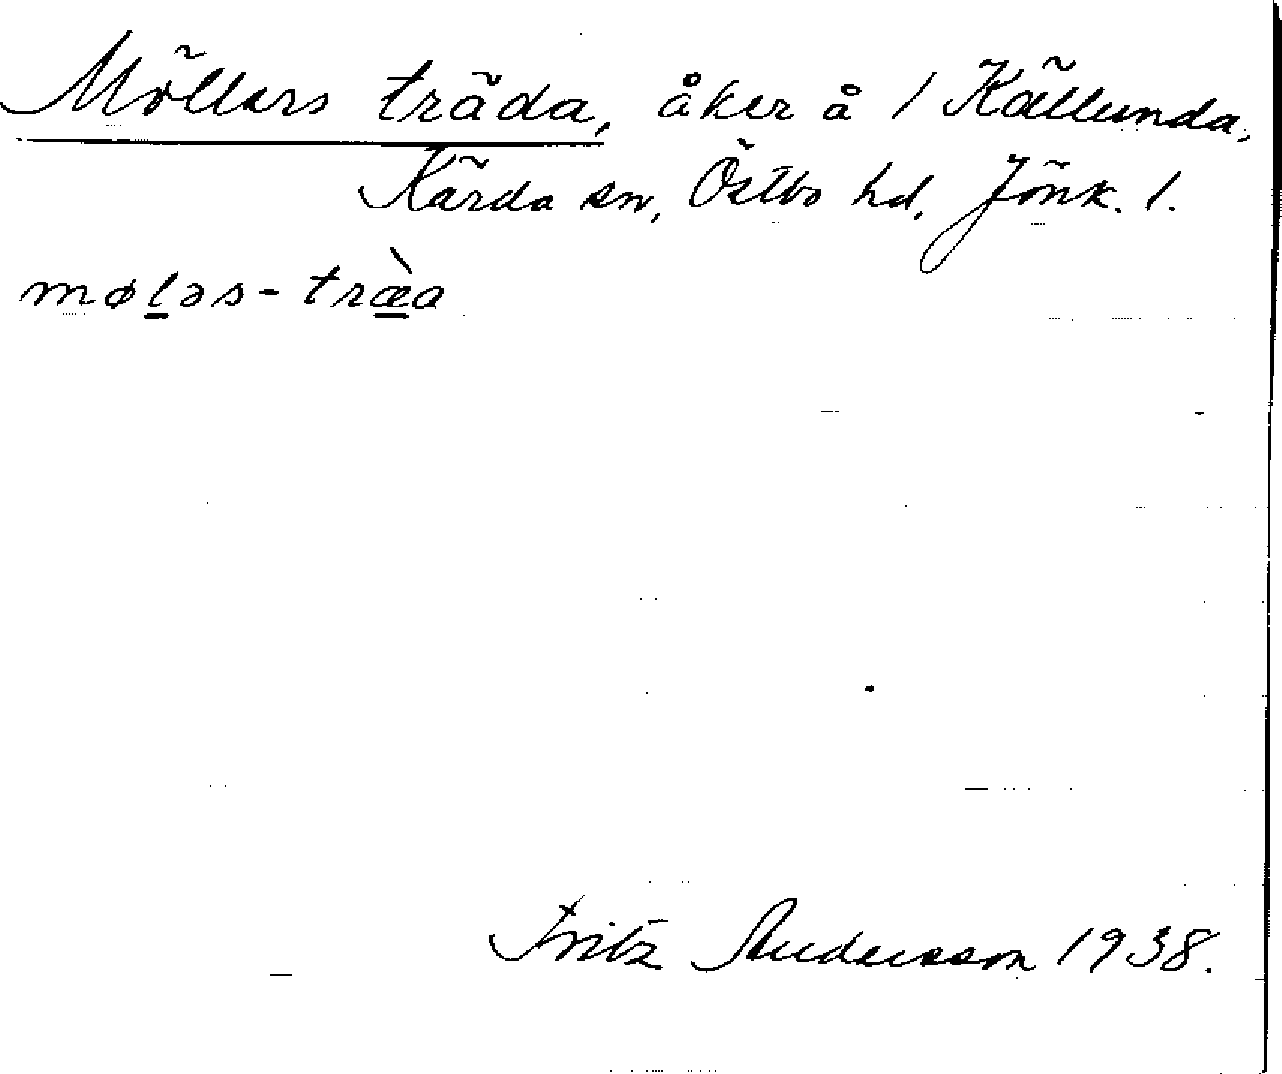 Möllers träda, åker å 1 Källunda,
Kärda sn, Östbo hd, Jönk. l.
møləs-træ̀a
Fritz Andersson 1938.